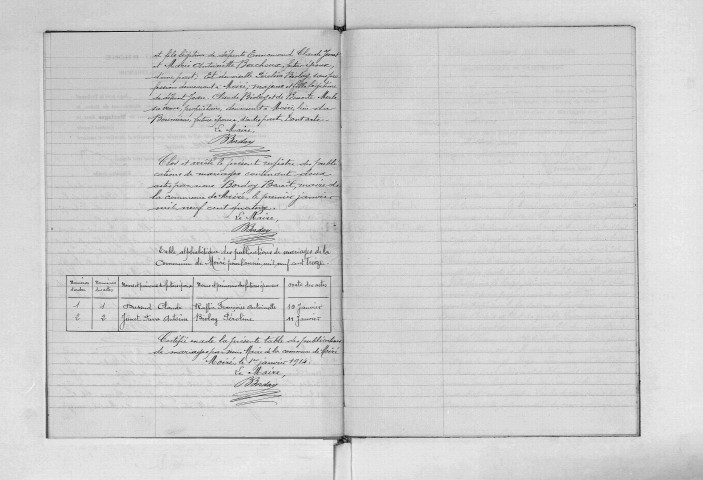 et fils légitime de défunts Emmanuel Claude Jonet
et Marie Antoinette Berchoux, futur époux,
d'une part; Et demoiselle Péroline Biolay, sans pro
fession demeurant à Moiré, majeure et fille légitime
de défunt Jean Claude Biolay et de Benoite Merle
sa veuve, propriétaire, demeurant à Moiré, lieu de
future épouse, d'autre part, Dont acte.
Le Maire,
Bordoy
Clos et arrêté le présent registre des publi
cations de mariages contenant deux
actes par nous Bordoy Benoit, maire de
la commune de Moiré, le premier janvier
mil neuf cent quatorze.
Le Maire,
Bordoy
Table alphabétique des publications de mariages de la
Commune de Moiré pour l'année mil neuf cent treize
Numéros d'ordre Numéros des actes Noms et prénoms des futurs époux Noms et prénoms des futures épouses Date des actes
1 1 Durand Claude Ruffin Françoise Antoinette 19 Janvier
2 2 Jonet Antoine Biolay Péroline Janvier
Certifié exacte la présente table des publications
de mariages par nous Maire de la commune de Moiré
Moiré le 1er janvier 1914.
Le Maire,
Bordoy